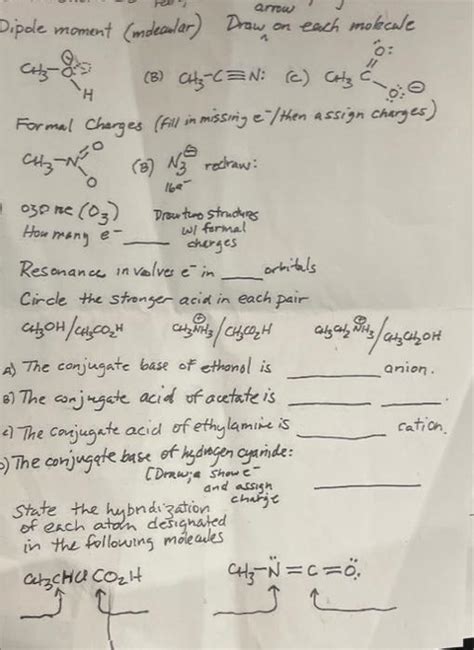 arrow
Dipole moment (molecular) Draw ^ on each molecule
CH3-O: H (B) CH3-C≡N: (C) CH3 C O: O: ⊖
Formal Charges (fill in missing e⁻/then assign charges)
CH3-N O O (B) N3⊖ redraw:
16e⁻
ozone (O3) Draw two structures
How many e⁻ ____ w/ formal
charges
Resonance involves e⁻ in ____ orbitals
Circle the stronger acid in each pair
CH3OH/CH3CO2H CH3NH3⊕/CH3CO2H CH3CH2NH3⊕/CH3CH2OH
A) The conjugate base of ethanol is ________ anion.
B) The conjugate acid of acetate is ________ ________.
c) The conjugate acid of ethylamine is ________ cation.
) The conjugate base of hydrogen cyanide:
[Draw; show e⁻
and assign ________
charge
State the hybridization
of each atom designated
in the following molecules
CH3CHCl CO2H CH3-N̈=C=Ö: